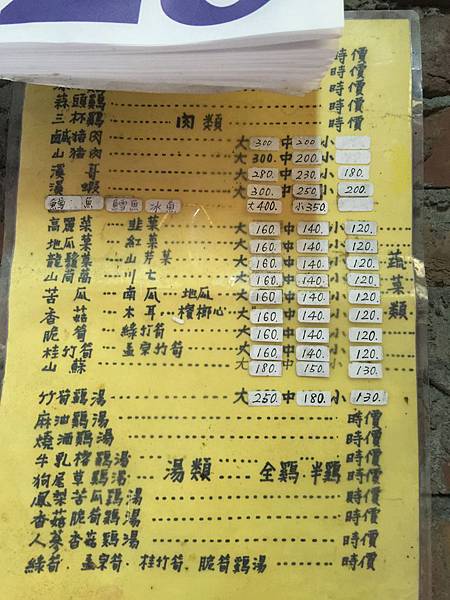 時價
時價
蒜頭雞 時價
三杯雞 肉類 時價
鹹豬肉 大 300 中 200 小
山豬肉 大 300. 中 200. 小
溪哥 大 280 中 230 小 180.
溪蝦 大 300 中 250 小 200
鱘魚 鱈魚 冰魚 大400 小350.
高麗菜 韭菜 大 160. 中 140. 小 120.
地瓜葉 紅菜 大 160. 中 140. 小 120.
龍鬚菜 山芹菜 大 160. 中 140. 小 120. 蔬菜類
山萵 川七 大 160. 中 140. 小 120.
苦瓜 南瓜 地瓜 大 160. 中 140. 小 120.
香菇 木耳 檳榔心 大 160. 中 140. 小 120.
脆筍 綠竹筍 大 160. 中 140. 小 120.
桂竹筍 孟宗竹筍 大 160. 中 140. 小 120.
山蘇 大 180. 中 150. 小 130
竹筍雞湯 大 250 中 180. 小 130.
麻油雞湯 時價
燒酒雞湯 時價
牛乳榕雞湯 時價
狗尾草雞湯 湯類 全雞.半雞 時價
鳳梨苦瓜雞湯 時價
香菇脆筍雞湯 時價
人蔘香菇雞湯 時價
綠筍、孟宗筍、桂竹筍、脆筍雞湯 時價